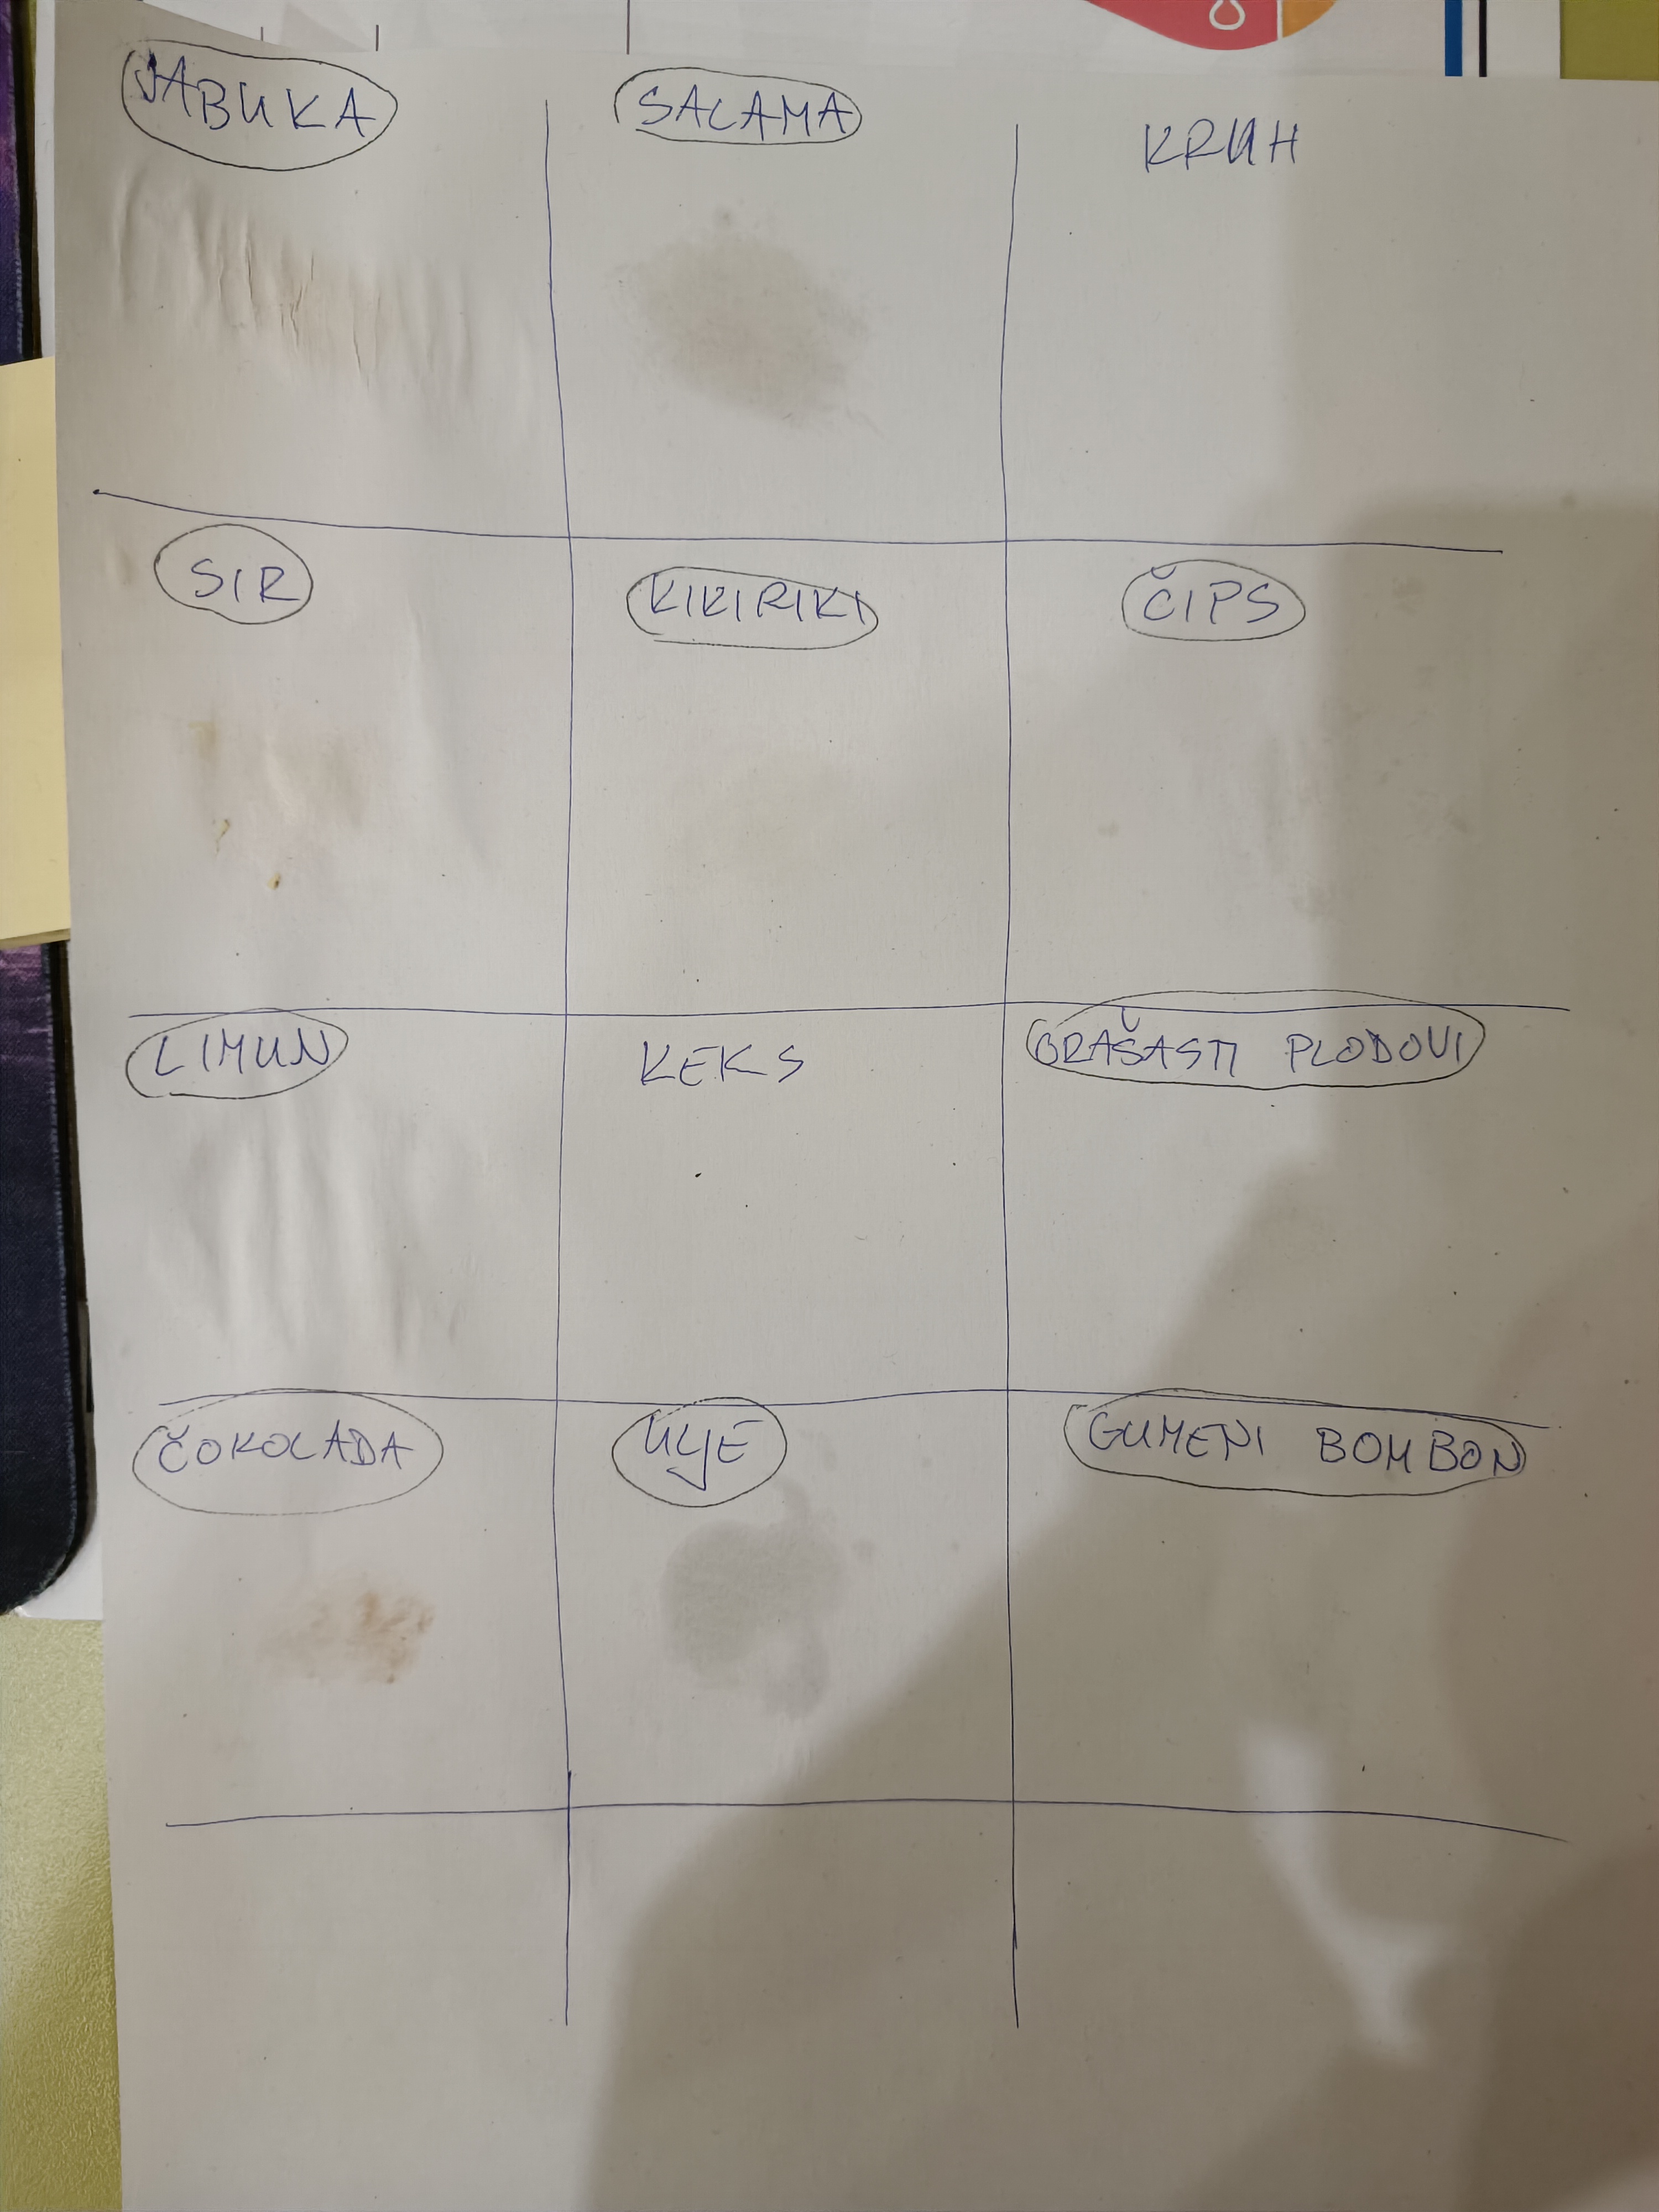 JABUKA
SALAMA
KRUH
SIR
KIKIRIKI
ČIPS
LIMUN
KEKS
ORAŠASTI PLODOVI
ČOKOLADA
ULJE
GUMENI BOMBON